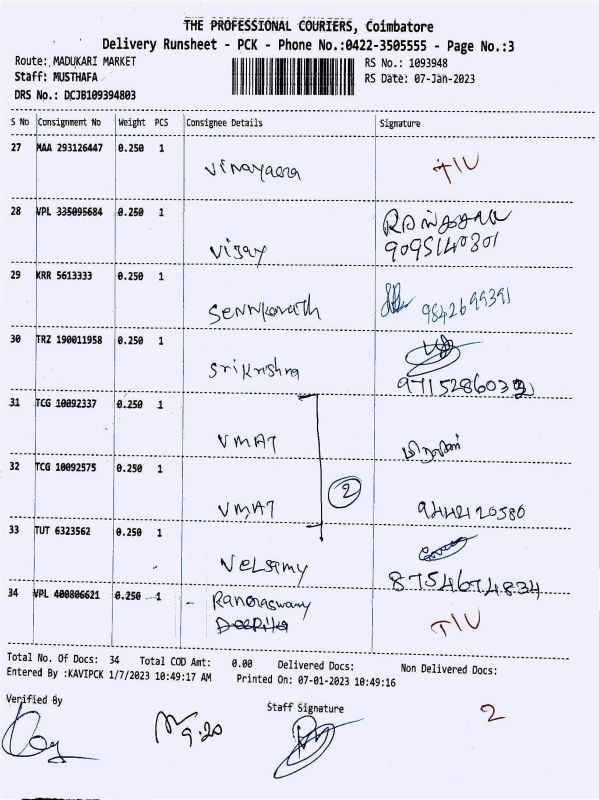 THE PROFESSIONAL COURIERS, Coimbatore
Delivery Runsheet - PCK - Phone No.:0422-3505555 - Page No.:3
Route: MADUKARI MARKET RS No.: 1093948
Staff: MUSTHAFA RS Date: 07-Jan-2023
DRS No.: DCJB109394803
S No Consignment No Weight PCS Consignee Details Signature
27 MAA 293126447 0.250 1
TIU
28 VPL 335095684 0.250 1
Vijay 9095140301
29 KRR 5613333 0.250 1
9842699391
30 TRZ 190011958 0.250 1
Srikrishna
31 TCG 10092337 0.250 1
VMAT
32 TCG 10092575 0.250 1
2
VMAT 9442120580
33 TUT 6323562 0.250 1
Velsamy 8754674834
34 VPL 400806621 0.250 1
TIU
Total No. Of Docs: 34 Total COD Amt: 0.00 Delivered Docs: Non Delivered Docs:
Entered By :KAVIPCK 1/7/2023 10:49:17 AM Printed On: 07-01-2023 10:49:16
Verified By Staff Signature
9.20 2